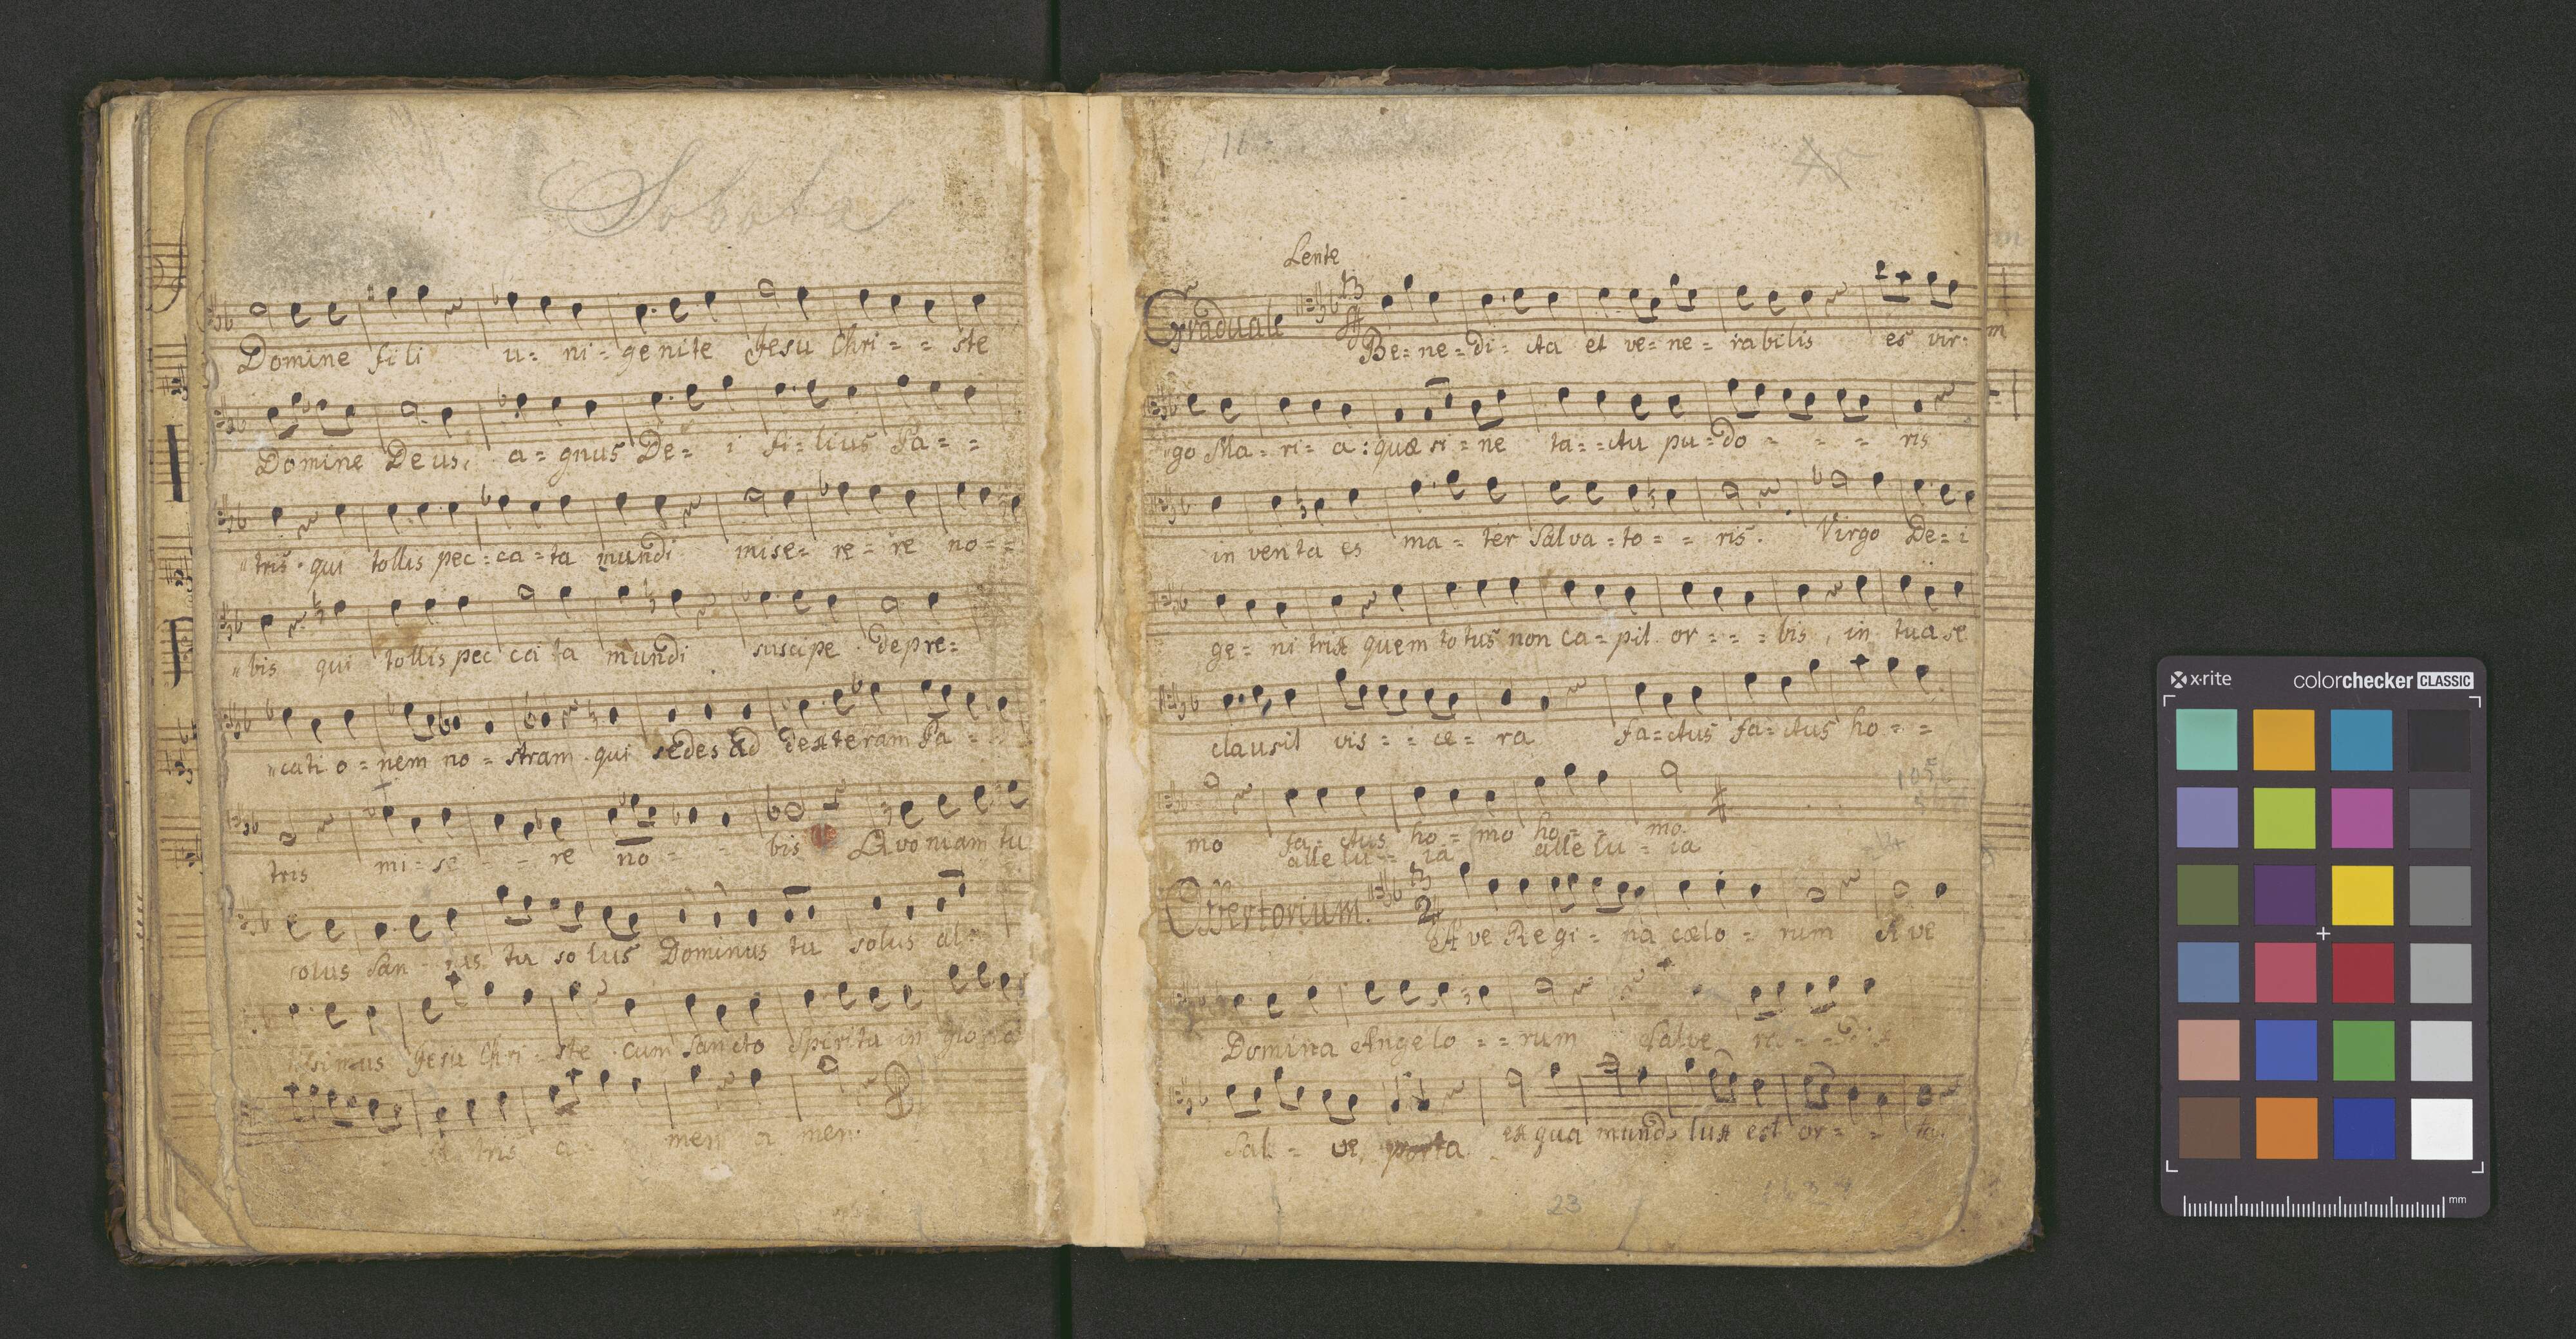 Sobota
Domine fili u= ni= genite Jesu Chri= = ste
Domine Deus, a= gnus De= i fi= lius Pa= =
"tris qui tollis pec= ca= ta mundi mise= re= re no= =
"bis qui tollis pec ca ta mundi suscipe depre=
"cati o= nem no= stram qui sedes ad dexteram Pa= =
tris mi= se= = re no= = bis Quoniam tu
solus San= ctus tu so lus Dominus tu solus al=
tissimus Jesu Chri= ste cum Sancto Spiritu in gloria
tris a= men a men.
16
45
Lente
Graduale Be= ne= di= cta et ve= ne= rabilis es vir=
"go Ma= ri= a: quæ si= ne ta= =ctu pu= do= = = ris
in venta es ma= ter Salva= to= = ris. Virgo De= i
ge= ni trix quem totus non ca= pit or= = = bis, in tua se
clausit vis= = ce= ra fa=ctus fa=ctus ho= =
mo fa= ctus ho= mo ho= = mo.
alle lu= ia alle lu= ia
Offertorium. 2/4 Ave Regi= na cælo= rum Ave
Domina Angelo= = rum Salve
Sal= ve, porta ex qua mundo lux est or= = ta.
23
x-rite colorchecker CLASSIC
mm